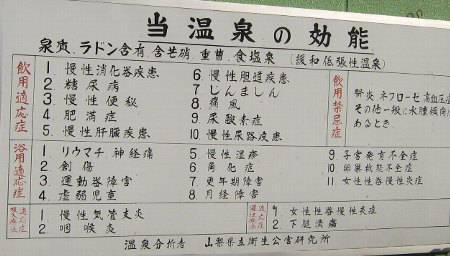 当温泉の効能
泉質 ラドン含有 含芒硝 重曹 食塩泉 (緩和低張性温泉)
飲用適応症
1 慢性消化器疾患
2. 糖尿病
3. 慢性便秘
4. 肥満症
5. 慢性肝臓疾患
6. 慢性胆道疾患
7. じんましん
8. 痛風
9. 尿酸素症
10 慢性尿路疾患
飲用禁忌症
腎炎 ネフローゼ 高血圧症
その他一般に水腫傾向の
あるとき.
浴用適応症
1. リウマチ. 神経痛
2 創傷
3. 運動器障害
4. 虚弱児童
5. 慢性湿疹
6 角化症
7. 更年期障害
8 月経障害
9. 子宮発育不全症
10 卵巣機能不全症
11 女性性器慢性炎症
適応症
1 慢性気管支炎
2 咽喉炎
適応症
1. 女性性器慢性炎症
2. 下腿潰瘍
温泉分析者 山梨県立衛生公害研究所